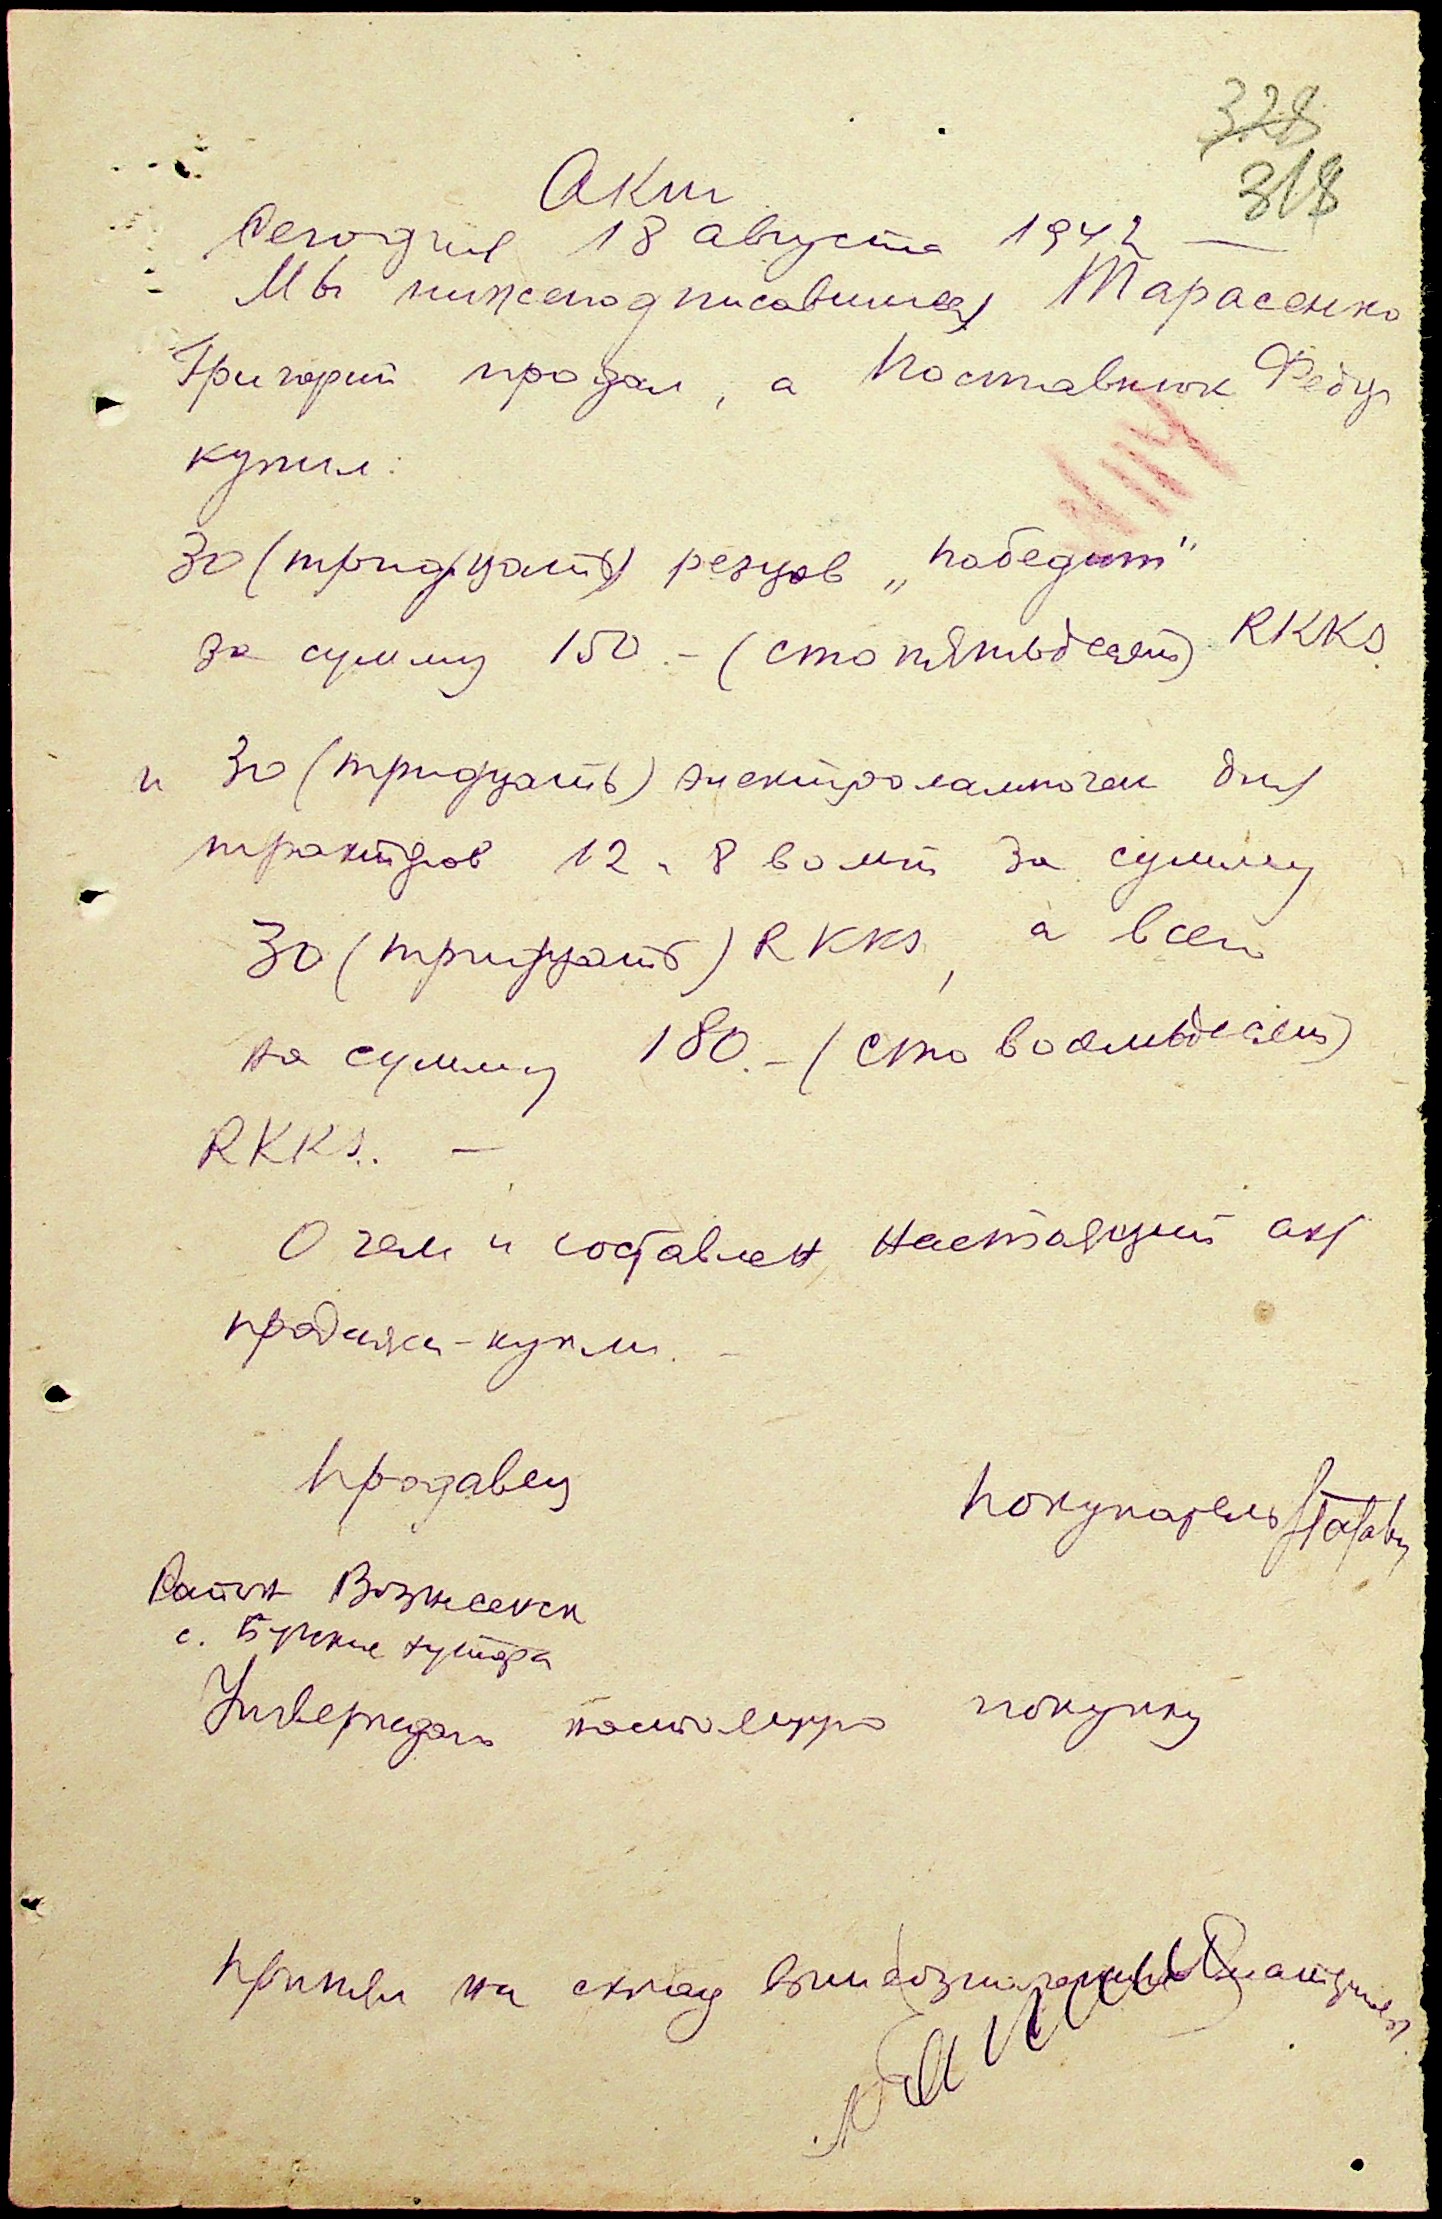 328
318
Акт
Сегодня 18 августа 1942 —
Мы нижеподписавшиеся Тарасенко
Григорий продал, а Поставнюк Федор
купил:
30 (тридцать) резцов „победит"
за сумму 150.- (сто пятьдесят) RKKS
и 30 (тридцать) электролампочек для
тракторов 12 и 8 вольт за сумму
30 (тридцать) RKKS, а всего
на сумму 180.- (сто восемьдесят)
RKKS. —
О чем и составлен настоящий акт
продажи-купли. —
Продавец
Покупатель
Район Вознесенск
с. Бугские хутора
Утверждаю настоящую покупку
Принял на склад вышеозначенные